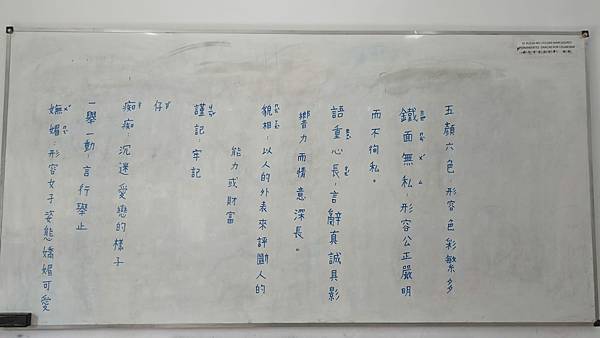 五顏六色:形容色彩繁多
鐵面無私:形容公正嚴明
而不徇私。
語重心長:言辭真誠具影
響力而情意深長。
貌相:以人的外表來評斷人的
能力或財富
謹記:牢記
仔
痴痴:沉迷愛戀的樣子
一舉一動:言行舉止
嫵媚:形容女子姿態嬌媚可愛